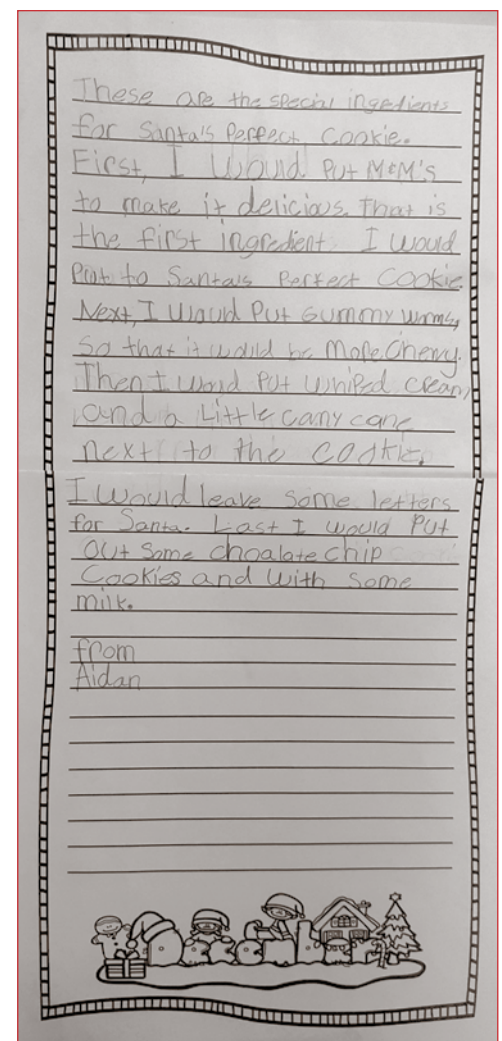 These are the special ingredients
for Santa's Perfect Cookie.
First, I Would Put M&M's
to make it delicious. that is
the first ingredient I would
to Santa's Perfect Cookie.
Next, I Would Put Gummy worms,
So that it would be More Chewy.
Then I would Put Whiped cream,
and a Little cany cane
next to the cookie.
I would leave some letters
for Santa. Last I would Put
Out Some choalate chip
Cookies and with some
milk.
from
Aidan
December